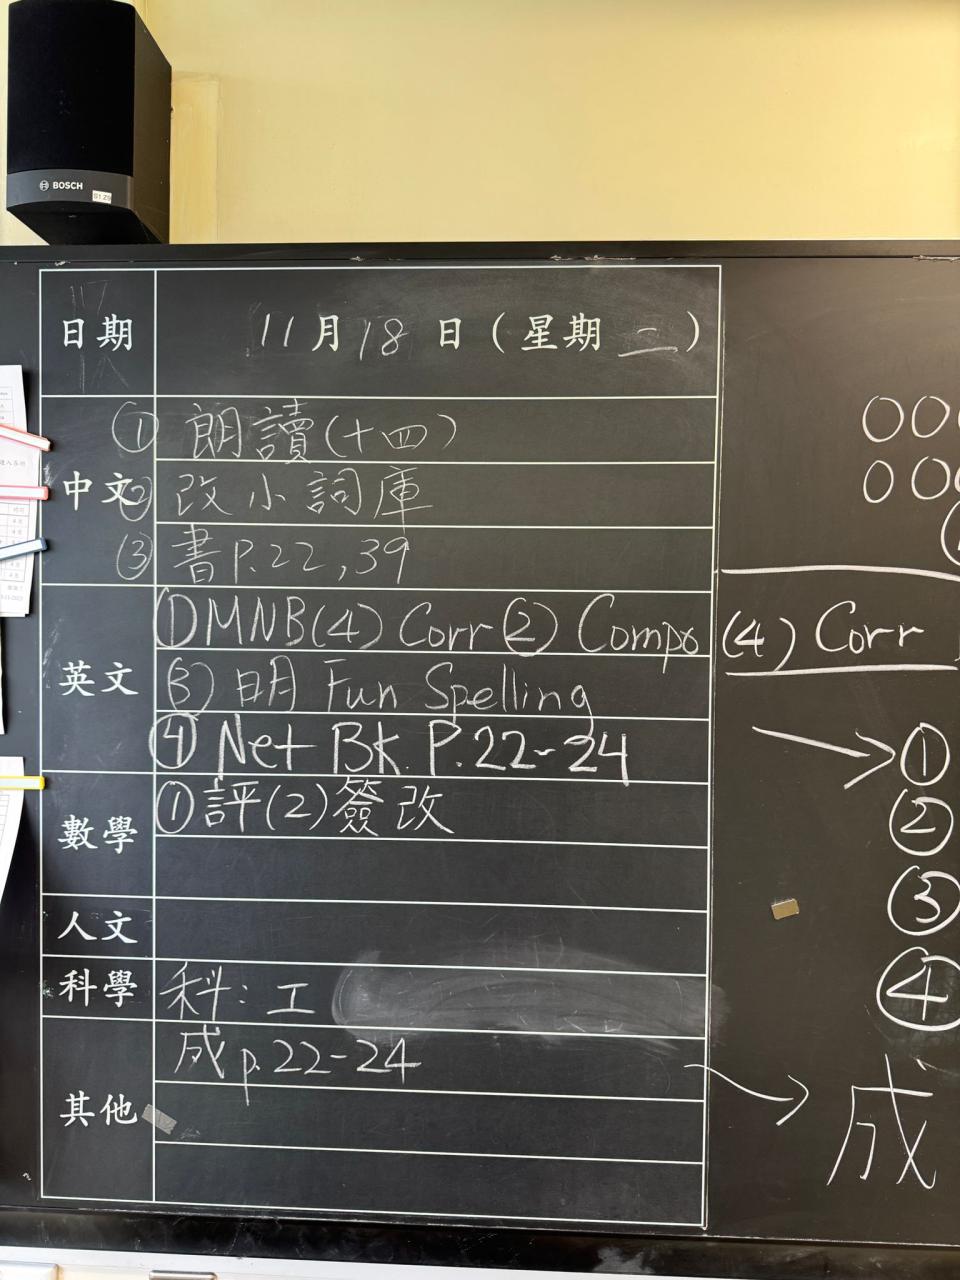 BOSCH
日期 11月18日(星期二)
中文
① 朗讀(十四)
② 改小詞庫
③ 書P.22,39
英文
① MNB(4) Corr ② Compo (4) Corr
③ 明 Fun Spelling
④ Net BK. P.22-24
數學
① 評(2)簽改
人文
科學 科: 工
其他
成p.22-24
①
②
③
④
成